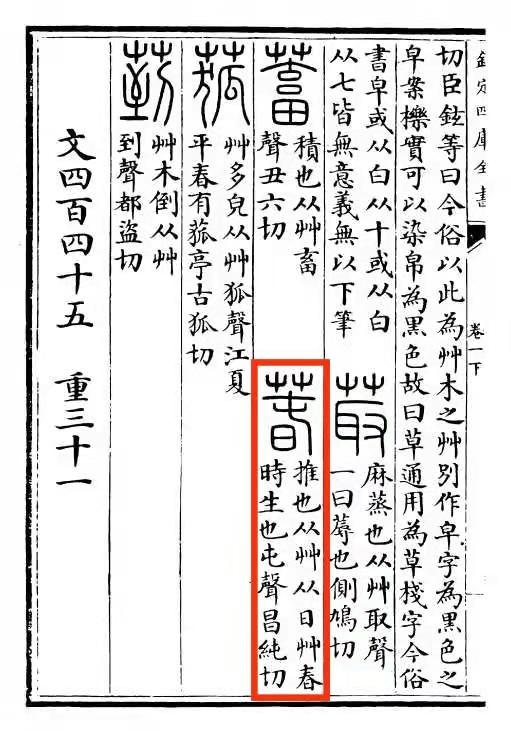 欽定四庫全書
卷一下
切臣鉉等曰今俗以此為艸木之艸別作皁字為黑色之
皁案櫟實可以染帛為黑色故曰草通用為草棧字今俗
書皁或从白从十或从白
从七皆無意義無以下筆
菆
麻蒸也从艸取聲
一曰蓐也側鳩切
蓄
積也从艸畜
聲丑六切
萅
推也从艸从日艸春
時生也屯聲昌純切
菰
艸多皃从艸狐聲江夏
平春有菰亭古狐切
菿
艸木倒从艸
到聲都盜切
文四百四十五 重三十一